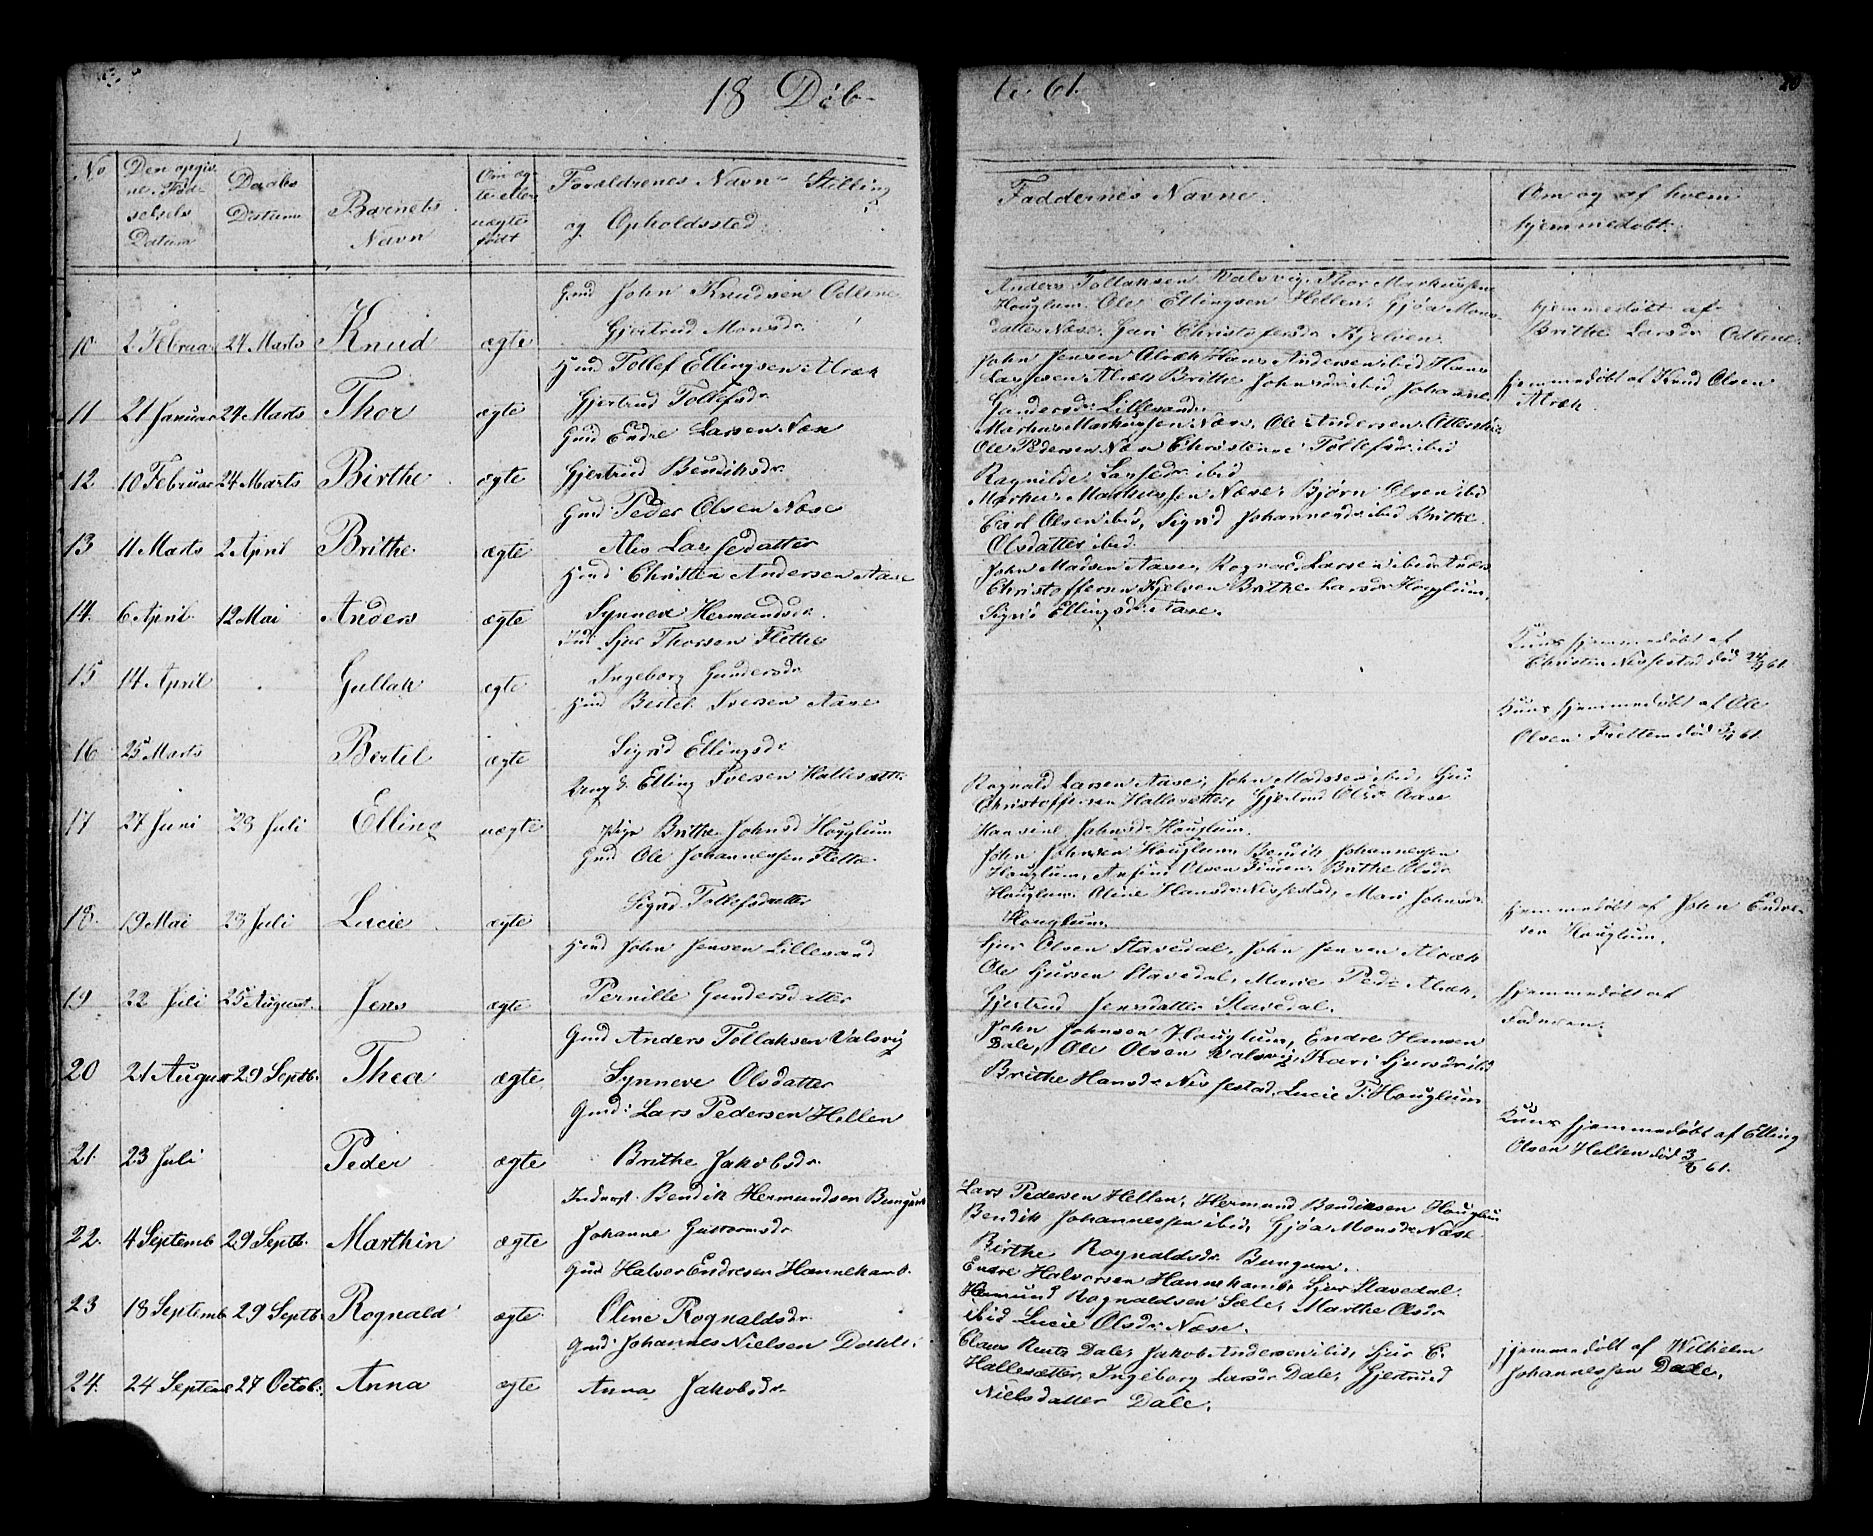 18 Døb-
te 61.
20
No
Den opgiv
ne Fød-
selsels
Datum
Daabs
Datum
Barnets
Navn
Om æg-
te eller
uægte
født
Forældrenes Navn Stilling
og Opholdssted.
Faddernes Navne.
Om og af hvem
hjemmedøbt.
10 2 Februar 24 Marts Knud ægte
Gmd John Knudsen Odlene
Gjertrud Monsdr.
Anders Tollaksen Valsvig, Thor Markussen
Houglum, Ole Ellingsen Hellen, Gjøa Mons-
datter Næse, Guri Christofersdr. Kjelven.
hjemmedøbt af
Brithe Larsdr. Odlene.
11 21 Januar 24 Marts Thor ægte
Hmd Tollef Ellingsen Alræk
Gjertrud Tollefsdr.
John Jensen Alræk Hans Andersen ibid Hans
Larssen Alræk Brithe Johnsdr. ibid, Johanne
Gundersdr. Lillesand.
hjemmedøbt af Knud Olsen
Alræk.
12 10 Februar 24 Marts Birthe ægte
Gmd Endre Larsen Næse
Gjertrud Bendiksdr.
Markus Markussen Næse, Ole Andersen
Ole Pedersen Næse Christine Tollefsdr. ibid
Ragnilde Larsedr. ibid
13 11 Marts 2 April Brithe ægte
Gmd: Peder Olsen Næse
Alis Larsedatter
Markus Markussen Næse, Bjørn Olsen ibid
Carl Olsen ibid, Sigrid Johannesdr. ibid Brithe
Olsdatter ibid
14. 6 April 12 Mai Anders ægte
Hmd: Christen Andersen Aase
Synneve Hermundsdr.
John Madsen Aase, Rognald Larsen ibid Anders
Christoffersen Kjelven Brithe Larsdr. Houglum,
Sigrid Ellingsdr. Aase.
15 14 April Gullak ægte
Ind: Sjur Thorsen Flethe
Ingeborg Gundersdr.
Kuns hjemmedøbt af
Christen Nissestad død 24/4 61.
16 25 Marts Bertel ægte
Hmd Bertel Iversen Aase
Sigrid Ellingsdr.
Kuns hjemmedøbt af Ole
Olsen Frettem død
17 27 Juni 23 Juli Elling uægte
Ungk. Elling Iversen Hallesætter
Pige Brithe Johnsd Houglum
Rognald Larsen Aase, John Madssen ibid, Sjur
Christoffersen Hallesætter, Gjertrud Olsdr. Aase
Hansine Johnsdr. Houglum.
18. 19 Mai 23 Juli Lucie ægte
Gmd Ole Johannessen Flethe
Sigrid Tollefsdatter
John Johnsen Houglum, Bendik Johannessen
Houglum, Olsen Brithe Olsdr.
Houglum. Oline Hansdr. Nissestad, Mari Johnsdr.
Houglum.
hjemmedøbt af John Endre-
sen Houglum.
19 22 Juli 25 August. Jens ægte
Hmd John Jensen Lillesand
Pernille Gundersdatter
Sjur Olsen Stavedal, John Jensen Alræk
Ole Sjursen Stavedal, Marie Peds. Alræk,
Gjertrud Jensdatter Stavedal.
hjemmedøbt af
Faderen.
20 21 August 29 Septb. Thea ægte
Gmd Anders Tollaksen Valsvig
Synneve Olsdatter
John Johnson Houglum, Endre Hansen
Dale, Ole Olsen Valsvig, Kari Sjursdr. ibid
Brithe Hansdr. Nissestad, Lucie T. Houglum
21. 23 Juli Peder ægte
Gmd: Lars Pedersen Hellen
Brithe Jakobsdr.
Kuns hjemmedøbt af Elling
Olsen Hellen død 3/8 61.
22. 4 Septemb 29 Septb. Marthin ægte
Inderst Bendik Hermundsen Bungum
Johanne Guttormsdr.
Lars Pedersen Hellen, Hermund Bendiksen Houglum
Bendik Johannessen ibid, Gjøa Monsdr. Næse
Birthe Rognaldsdr. Bungum.
23 18 Septemb 29 Septb. Rognald ægte
Gmd Halvor Endresen Hannekamb.
Oline Rognaldsdr.
Endre Halvorsen Hannekamb, Sjur Stavedal.
Hermund Rognaldsen Sæle, Marthe Olsdr.
ibid Lucie Olsdr. Næse.
24. 24 Septemb 27 Octob. Anna ægte
Gmd: Johannes Nielsen
Anna Jakobsdr.
Claus Rentz Dale, Jakob Andersen ibid, Sjur C.
Hallesætter, Ingeborg Larsdr. Dale, Gjertrud
Nielsdatter Dale.
hjemmedøbt af Wilhelm
Johannessen Dale.